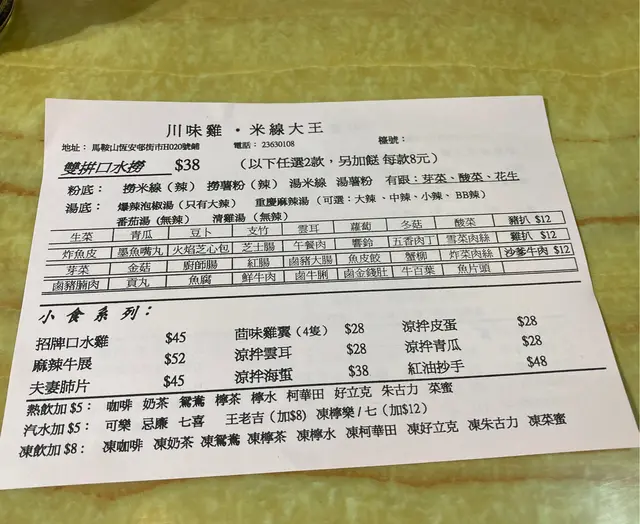 川味雞・米線大王
地址： 馬鞍山恆安邨街市H020號鋪 電話： 23630108 檯號：
雙拼口水撈 $38 （以下任選2款，另加餸 每款8元）
粉底： 撈米線（辣） 撈薯粉（辣） 湯米線 湯薯粉 有跟：芽菜、酸菜、花生
湯底： 爆辣泡椒湯（只有大辣） 重慶麻辣湯（可選：大辣、中辣、小辣、BB辣）
番茄湯（無辣） 清雞湯（無辣）
生菜 青瓜 豆卜 支竹 雲耳 蘿蔔 冬菇 酸菜 豬扒 $12
炸魚皮 墨魚嘴丸 火焰芝心包 芝士腸 午餐肉 響鈴 五香肉丁 雪菜肉絲 雞扒 $12
芽菜 金菇 廚師腸 紅腸 鹵豬大腸 魚皮餃 蟹柳 炸菜肉絲 沙爹牛肉 $12
鹵豬腩肉 貢丸 魚腐 鮮牛肉 鹵牛脷 鹵金錢肚 牛百葉 魚片頭
小食系列：
招牌口水雞 $45 茴味雞翼（4隻） $28 涼拌皮蛋 $28
麻辣牛展 $52 涼拌雲耳 $28 涼拌青瓜 $28
夫妻肺片 $45 涼拌海蜇 $38 紅油抄手 $48
熱飲加 $5： 咖啡 奶茶 鴛鴦 檸茶 檸水 柯華田 好立克 朱古力 菜蜜
汽水加 $5： 可樂 忌廉 七喜 王老吉（加$8） 凍檸樂/七（加$12）
凍飲加 $8： 凍咖啡 凍奶茶 凍鴛鴦 凍檸茶 凍檸水 凍柯華田 凍好立克 凍朱古力 凍菜蜜